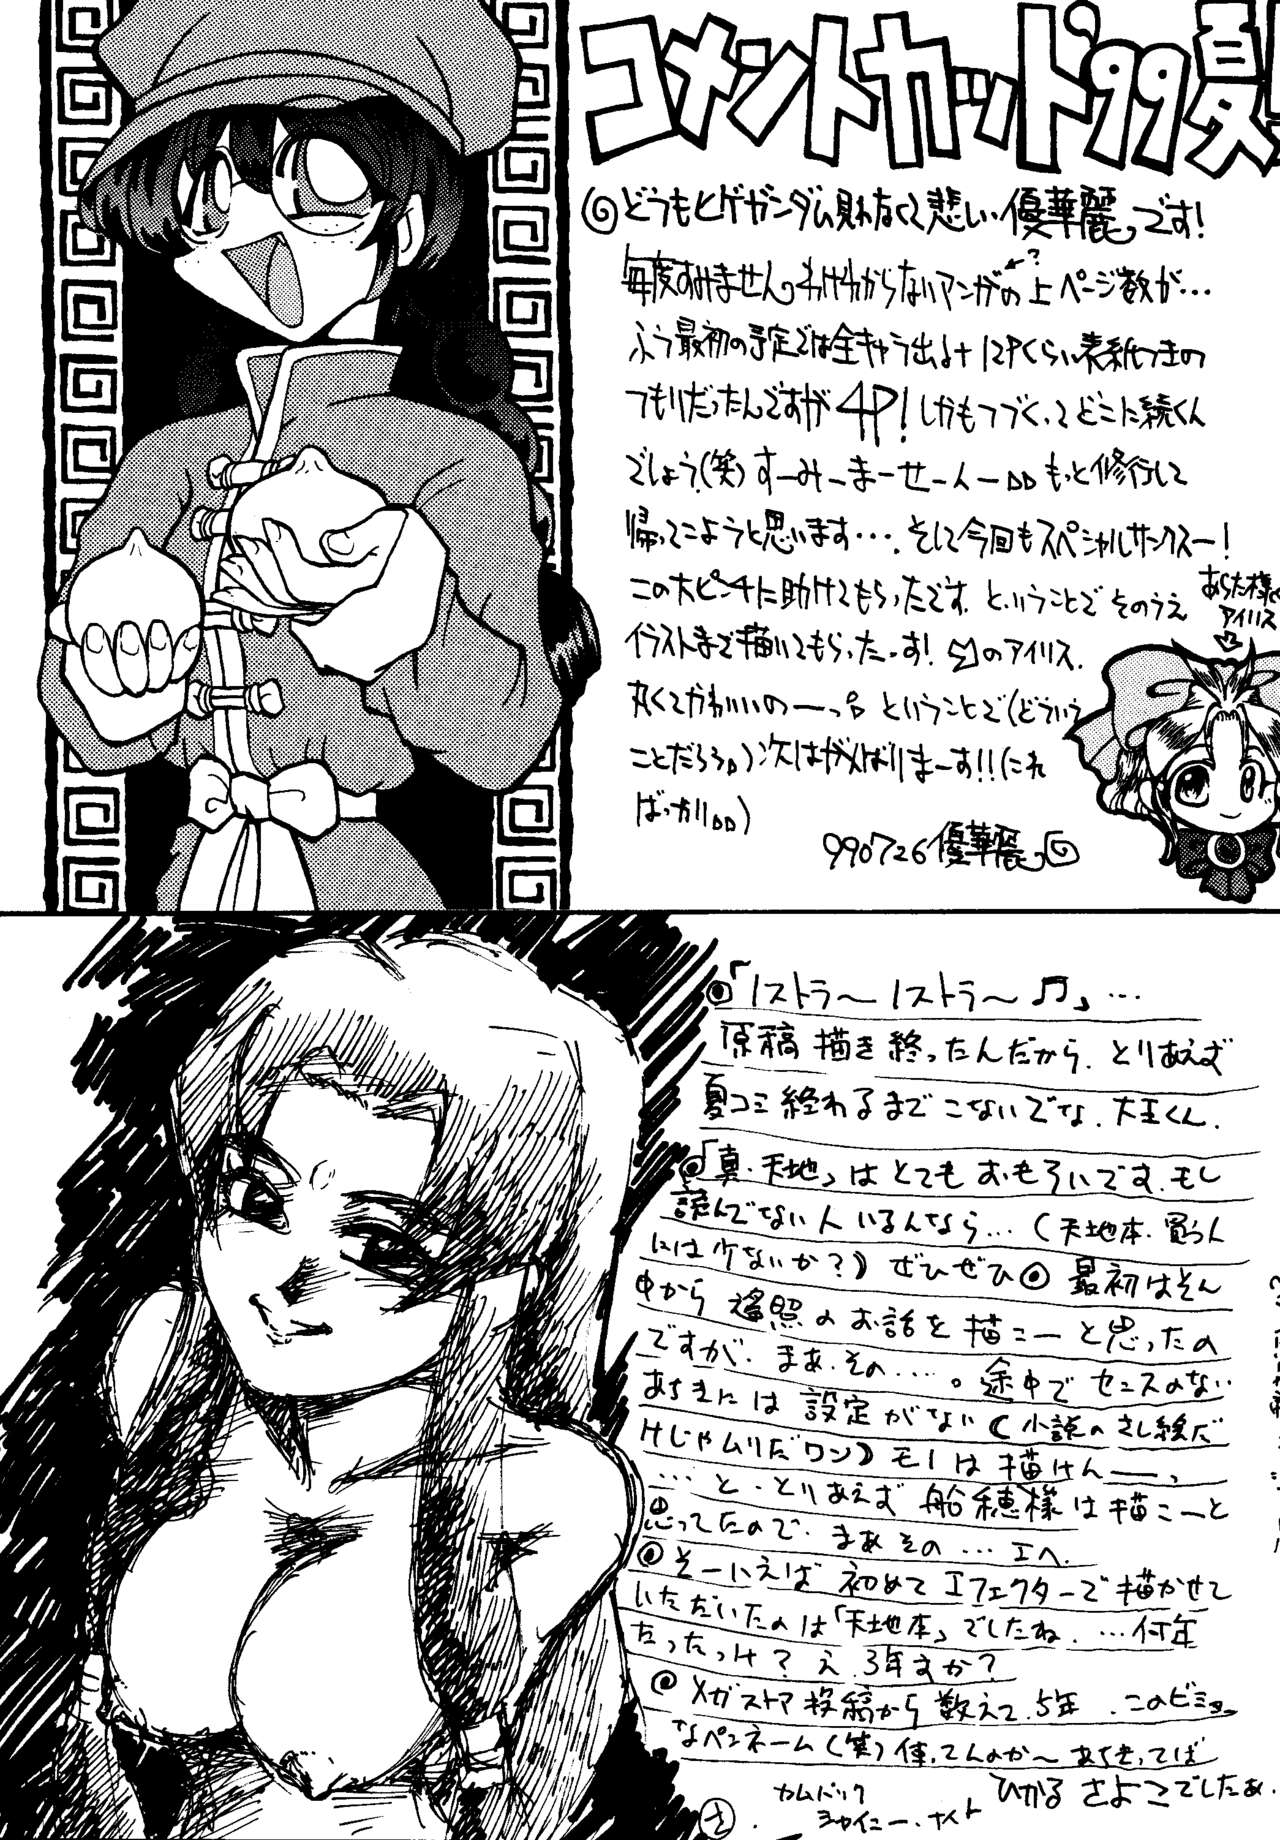 コメントカット'99夏!
どうもヒゲガンダム見れなくて悲しい優華麗っです!
毎度すみませんっわけわからないマンガの上ページ数が…
?
ふう最初の予定では全キャラ出る+12Pくらい表紙つきの
つもりだったんですが4P!しかもつづくってどこに続くん
でしょう(笑)すーみーまーせーんー もっと修行して
帰ってこようと思います…。そして今回もスペシャルサンクスー!
この大ピンチに助けてもらったです。ということでそのうえ
イラストまで描いてもらったっす! のアイリス。
丸くてかわいいのーっ ということで(どういう
ことだろう)次はがんばりまーす!!(これ
ばっかり)
990726優華麗っ
あらた様
アイリス
◎「ノストラ〜ノストラ〜♫」…
原稿描き終ったんだから、とりあえず
夏コミ終わるまでこないでな、大王くん。
◎「真・天地」はとてもおもろいです。もし
読んでない人いるんなら…(天地本、買う人
には少ないか?)ぜひぜひ◎ 最初はそん
中から遙照のお話を描こーと思ったの
ですが、まあ、その…。途中でセンスのない
あちきには設定がない(小説のさし絵だ
けじゃムリだワン)モノは描けんーっ
…と、とりあえず船穂様は描こーと
思ってたので、まあその…エヘ。
◎そーいえば初めてエフェクターで描かせて
いただいたのは「天地本」でしたね。…何年
だったっけ?え、3年まか?
◎メガストア投稿から数えて、5年、このビミョー
なペンネーム(笑)使ってんのか〜あちきってば
カムバック
シャイニー・ナイト
ひかる さよこでしたぁ.